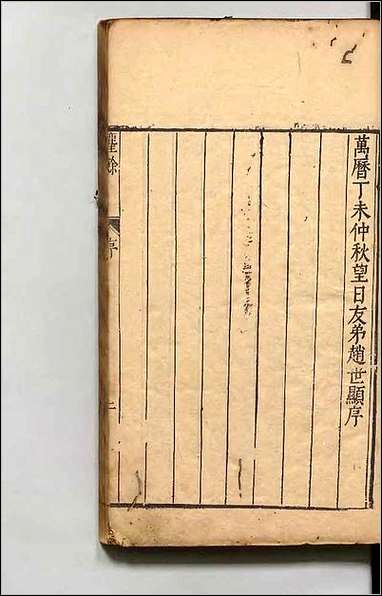 萬曆丁未仲秋望日友弟趙世顯序
塵餘
序
二